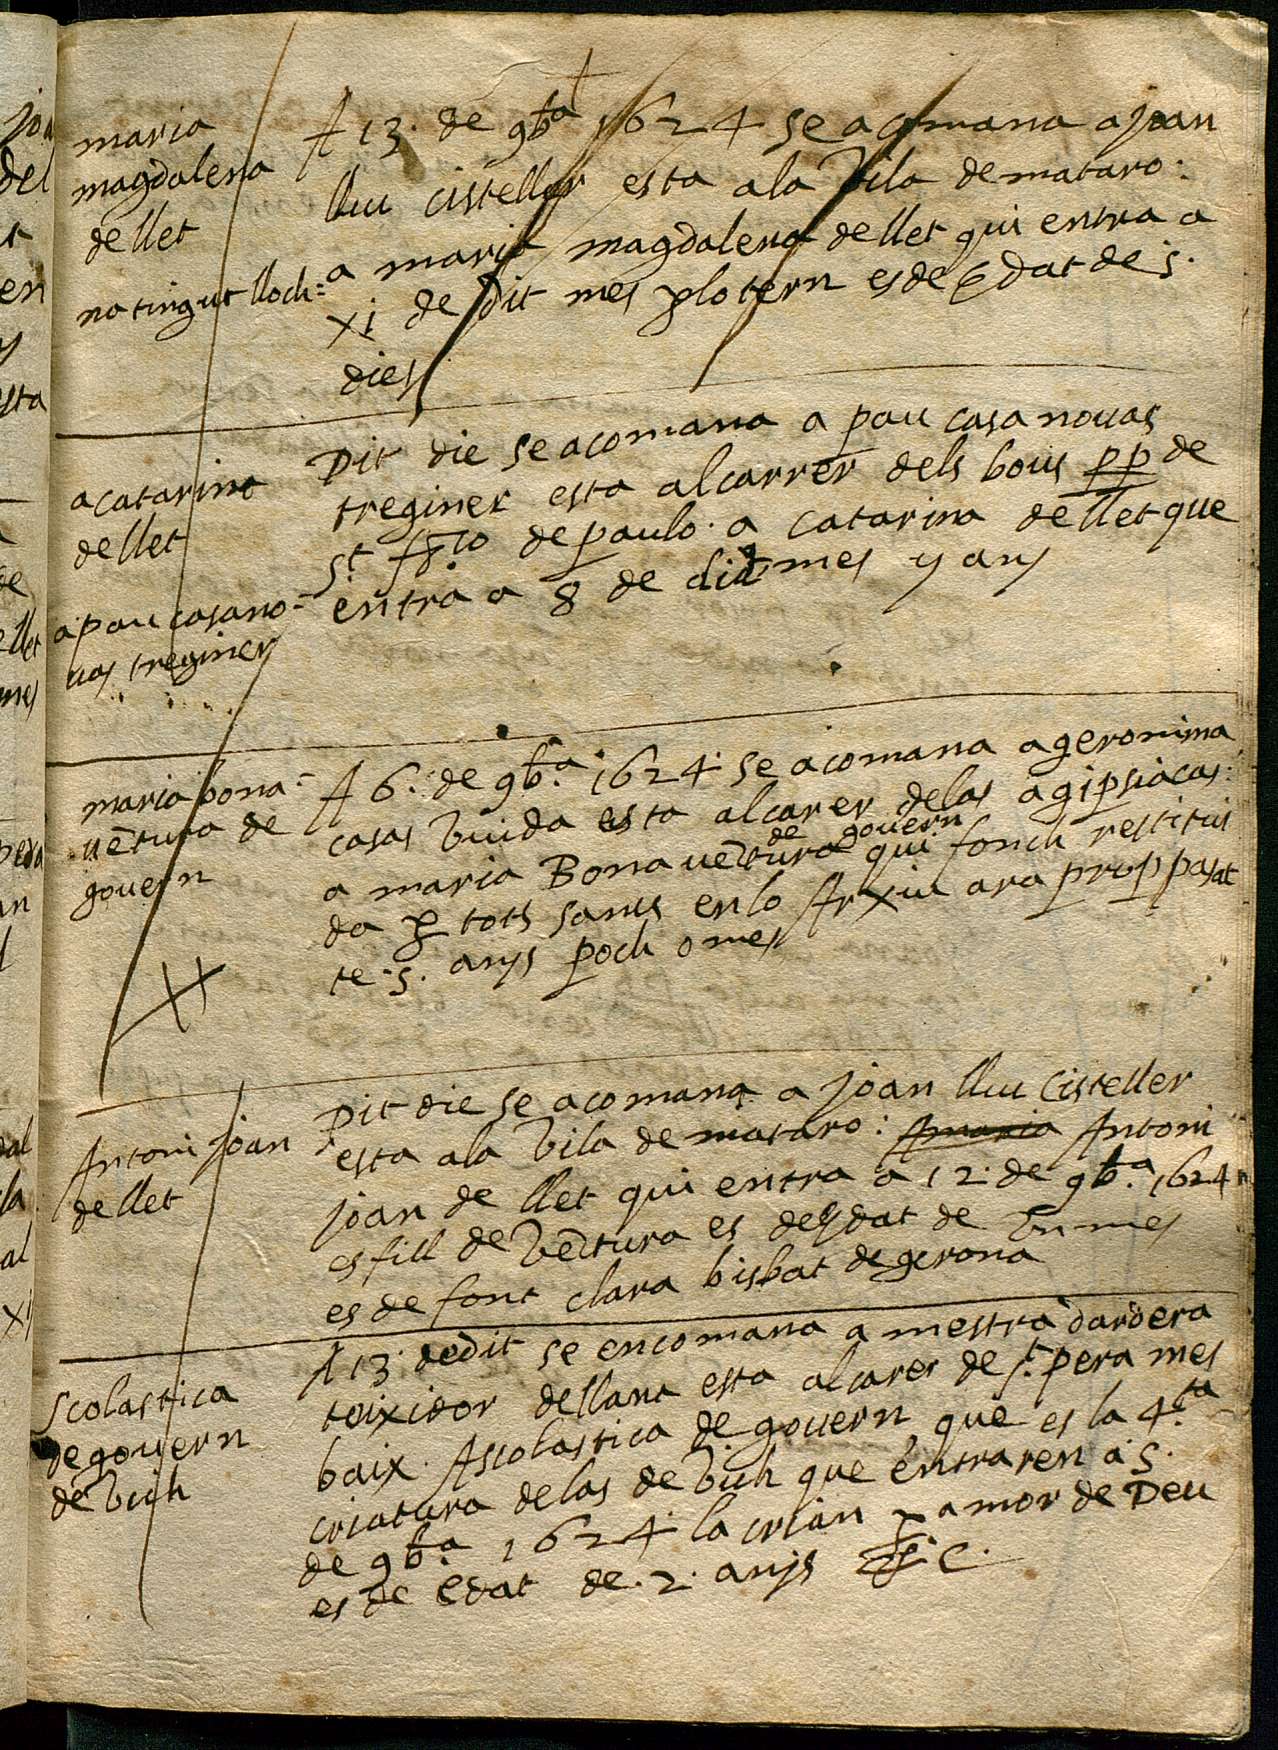 maria
magdalena
de llet
no tingut lloch:
A 13. de 9bra 1624 se acomana a joan
lluu cisteller esta a la vila de mataro:
a maria magdalena de llet qui entra a
xi de dit mes p lo tern es de edat de 5.
dies
a catarina
de llet
a pau casano-
uas treginer
Dit die se acomana a pau casanouas
treginer esta al carrer dels bous pp de
St. fco de paulo. a catarina de llet que
entra a 8 de dit mes y any
maria bona-
uētura de
gouern
A 6. de 9b.a 1624. se acomana a geronima
casas viuda esta al carer de las agipsiacas:
de gouern
a maria Bonauētura qui fonch restitui
da p tots sants en lo Arxiu ara prop pasat
te .5. anys poch o mes
Antoni joan
de llet
Dit die se acomana a joan lluu Cisteller
esta a la vila de mataro: A maria Antoni
joan de llet qui entra a 12. de 9b.a 1624
es fill de vētura es de edat de vn mes
es de font clara bisbat de gerona
Scolastica
de gouern
de vich
A 13. de dit se encomana a mestra dardera
teixidor de llana esta al carer de st. pera mes
baix. A scolastica de gouern que es la 4.ta
criatura de las de vich que entraren a 5.
de 9b.a 1624. la crian p amor de Deu
es de edat de .2. anys